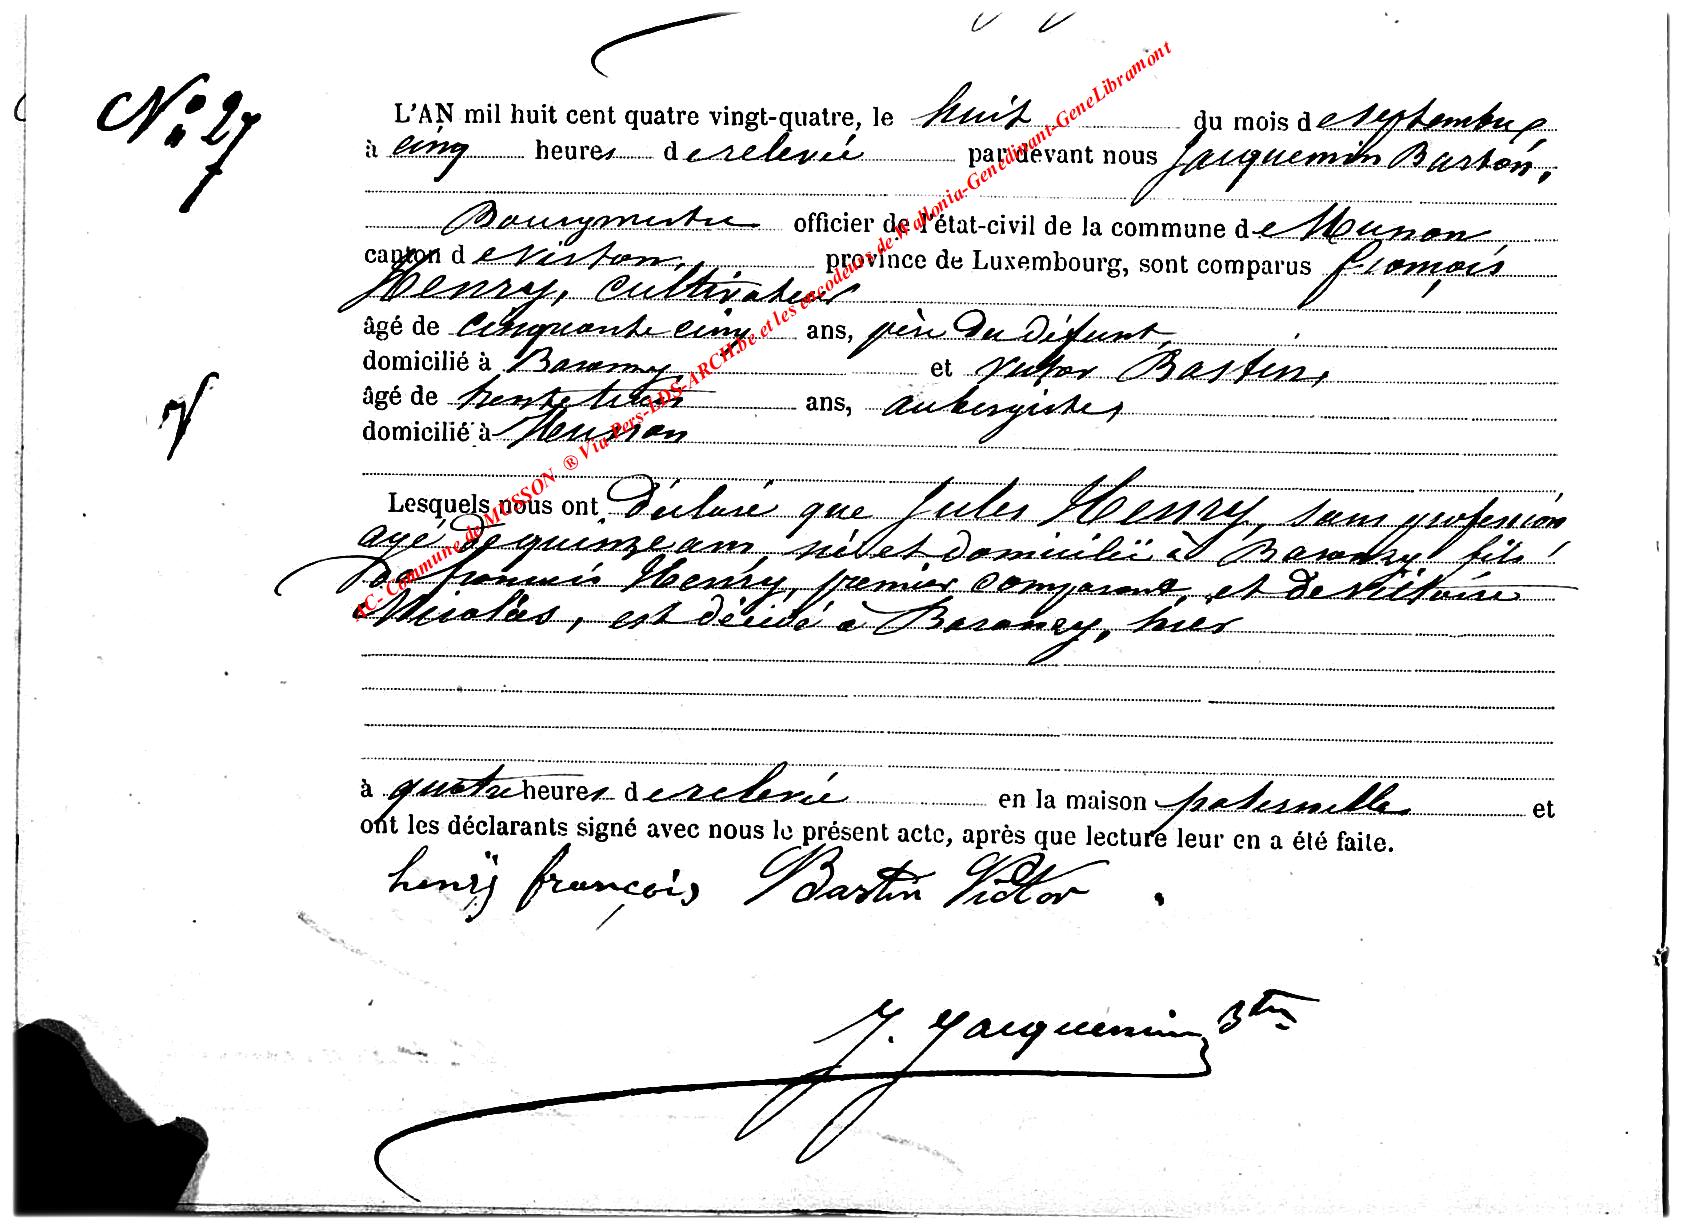 N° 27
L'AN mil huit cent quatre vingt-quatre, le huit du mois de septembre
à cinq heures de relevée par devant nous Jacquemin Baston,
Bourgmestre officier de l'état-civil de la commune de Musson,
canton de Virton, province de Luxembourg, sont comparus françois
Henry, cultivateur
âgé de cinquante cinq ans, père du défunt,
domicilié à Baranzy et Victor Bastin,
âgé de trente trois ans, aubergiste,
domicilié à Musson
Lesquels nous ont déclaré que Jules Henry, sans profession
agé de quinze ans, né et domicilié à Baranzy fils
de françois Henry, premier comparant, et de Victoire
Nicolas, est décédé à Baranzy, hier
à quatre heures de relevée en la maison paternelle et
ont les déclarants signé avec nous le présent acte, après que lecture leur en a été faite.
henrÿ françois Bastin Victor
J. Jacquemin Btre
AC- Commune de MUSSON ® Via Pers-LDS-ARCH.be et les encodeurs de Wallonia-Genedinant-GeneLibramont